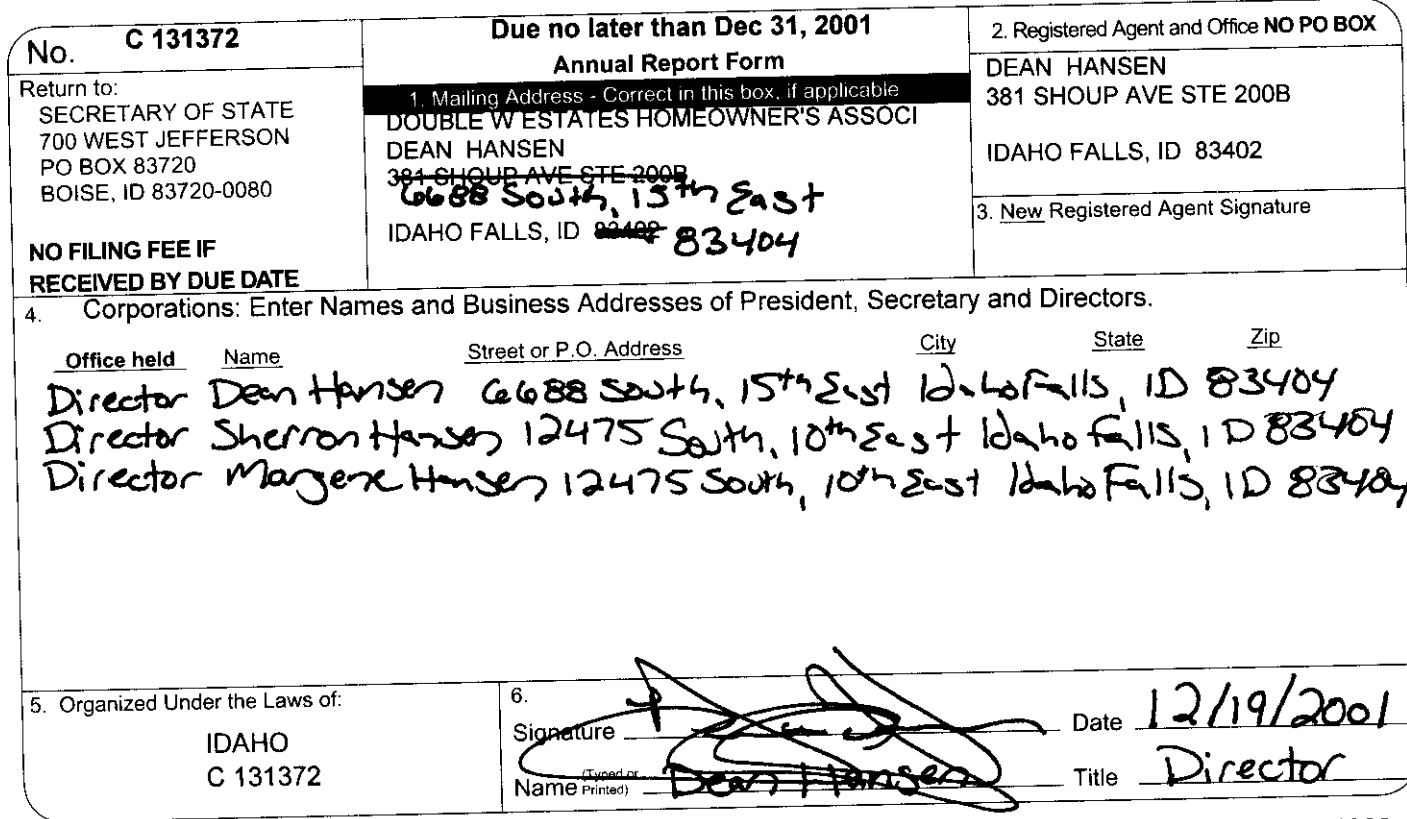 No. C 131372
Return to:
SECRETARY OF STATE
700 WEST JEFFERSON
PO BOX 83720
BOISE, ID 83720-0080
NO FILING FEE IF
RECEIVED BY DUE DATE
Due no later than Dec 31, 2001
Annual Report Form
1. Mailing Address - Correct in this box, if applicable
DOUBLE W ESTATES HOMEOWNER'S ASSOCI
DEAN HANSEN
381 SHOUP AVE STE 200B
6688 South, 15th East
IDAHO FALLS, ID 83402 83404
2. Registered Agent and Office NO PO BOX
DEAN HANSEN
381 SHOUP AVE STE 200B
IDAHO FALLS, ID 83402
3. New Registered Agent Signature
4. Corporations: Enter Names and Business Addresses of President, Secretary and Directors.
Office held Name Street or P.O. Address City State Zip
Director Dean Hansen 6688 South, 15th East Idaho Falls, ID 83404
Director Sherron Hansen 12475 South, 10th East Idaho Falls, ID 83404
Director Margene Hansen 12475 South, 10th East Idaho Falls, ID 83404
5. Organized Under the Laws of:
IDAHO
C 131372
6.
Signature Date 12/19/2001
Name (Typed or Printed) Dean Hansen Title Director